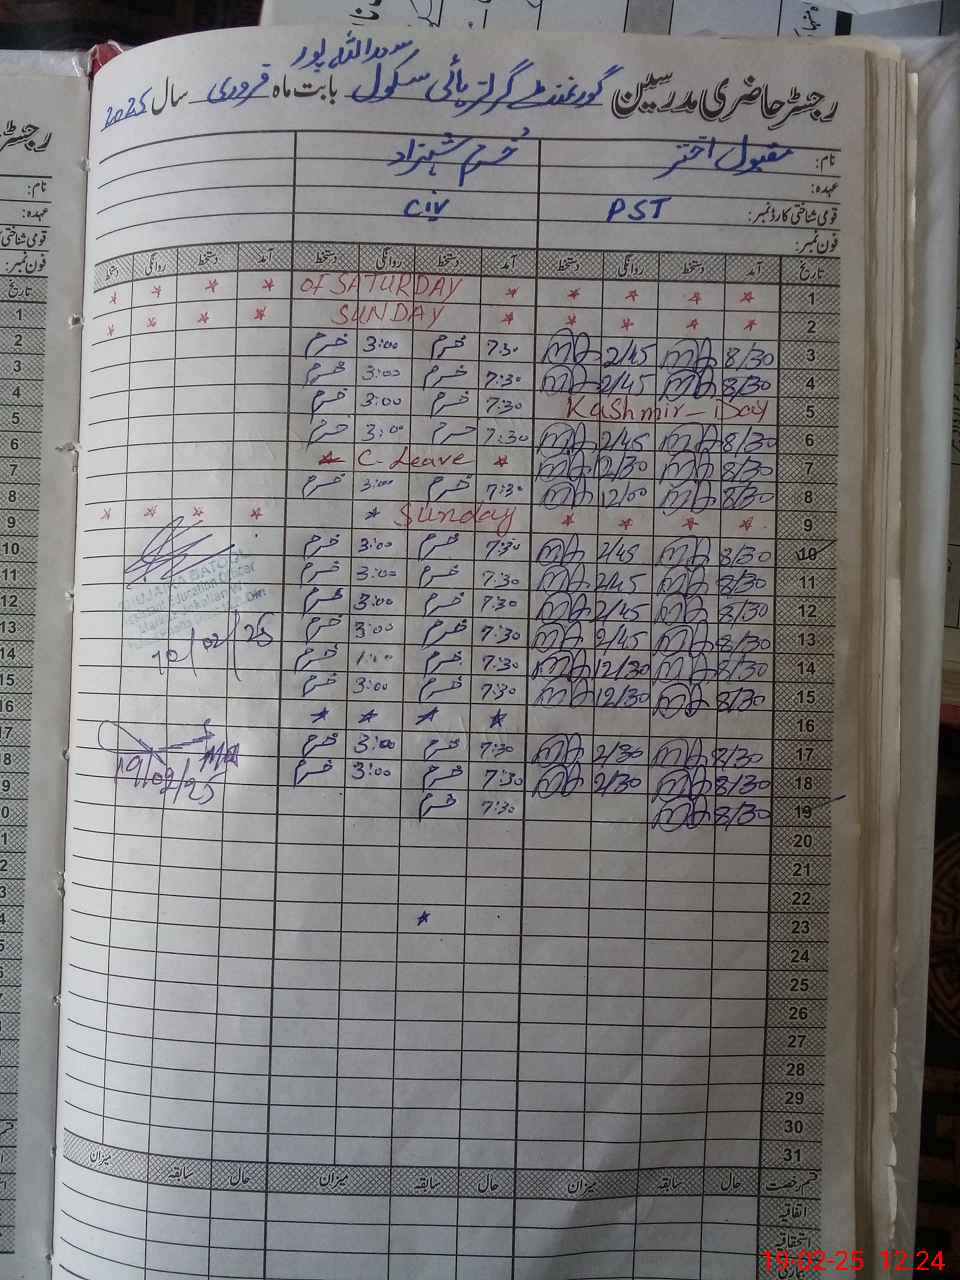 سعد اللہ پور
رجسٹر حاضری مدرسین گورنمنٹ گرلز ہائی سکول بابت ماہ فروری سال 2025
نام: مقبول اختر خرم شہزاد
عہدہ:
قومی شناختی کارڈ نمبر: PST Civ
فون نمبر:
تاریخ آمد دستخط روانگی دستخط آمد دستخط روانگی دستخط آمد دستخط روانگی دستخط
1 * * * * * OF SATURDAY * * * *
2 * * * * * SUNDAY * * * *
3 8/30 2/45 7:30 خرم 3:00 خرم
4 8/30 2/45 7:30 خرم 3:00 خرم
5 Kashmir - Day 7:30 خرم 3:00 خرم
6 8/30 2/45 7:30 خرم 3:00 خرم
7 8/30 12/30 * C- Leave *
8 8/30 12/00 7:30 خرم 3:00 خرم
9 * * * * Sunday * * * * *
10 8/30 2/45 7:30 خرم 3:00 خرم
11 8/30 2/45 7:30 خرم 3:00 خرم
12 8/30 2/45 7:30 خرم 3:00 خرم
13 8/30 2/45 7:30 خرم 3:00 خرم 10/02/25
14 8/30 12/30 7:30 خرم 1:00 خرم
15 8/30 12/30 7:30 خرم 3:00 خرم
16 * * * *
17 8/30 2/30 7:30 خرم 3:00 خرم
18 8/30 2/30 7:30 خرم 3:00 خرم 19/02/25
19 8/30 7:30 خرم
20
21
22
23 *
24
25
26
27
28
29
30
31
قسم رخصت حال سابقہ میزان حال سابقہ میزان حال سابقہ میزان
اتفاقیہ
استحقاقیہ
بیماری
19-02-25 12:24